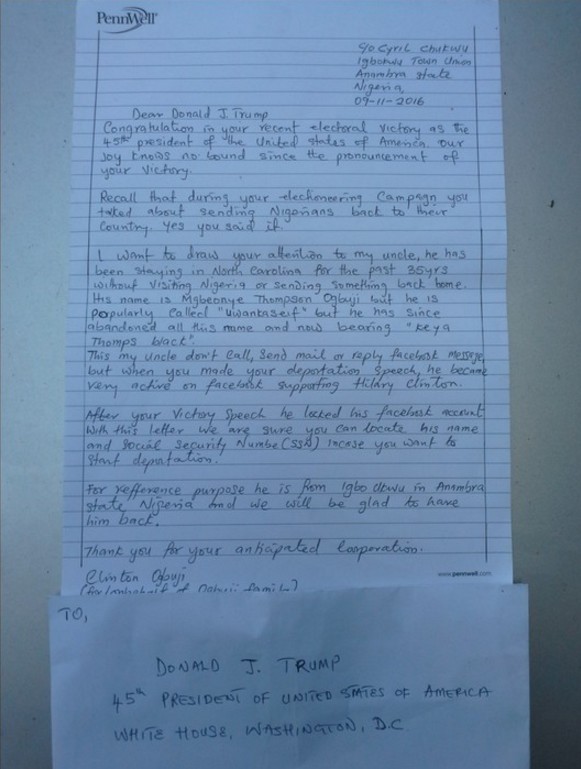 PennWell
c/o Cyril Chukwu
Igboukwu Town Union
Anambra State
Nigeria,
09-11-2016
Dear Donald J. Trump
Congratulation in your recent electoral Victory as the
45th president of the United States of America. Our
Joy knows no bound since the pronouncement of
your Victory.
Recall that during your electioneering Campaign you
talked about sending Nigerians back to their
Country. Yes you said it
I want to draw your attention to my uncle, he has
been staying in North Carolina for the past 35yrs
without visiting Nigeria or sending something back home.
His name is Mgbeonye Thompson Ogbuji but he is
popularly Called "uwantaseif" but he has since
abandoned all this name and now bearing "Keya
Thomps black".
This my uncle don't Call, Send mail or reply facebook message,
but when you made your deportation speech, he became
very active on facebook supporting Hilary Clinton.
After your Victory Speech he locked his facebook account
with this letter we are sure you can locate his name
and Social Security Numbe(SSN) incase you want to
Start deportation.
For refference purpose he is from Igbo Ukwu in Anambra
State Nigeria and we will be glad to have
him back.
Thank you for your anticipated Cooporation.
Clinton Ogbuji
www.pennwell.com
(for/onbehalf of Ogbuji family)
TO,
DONALD J. TRUMP
45th PRESIDENT OF UNITED STATES OF AMERICA
WHITE HOUSE, WASHINGTON, D.C